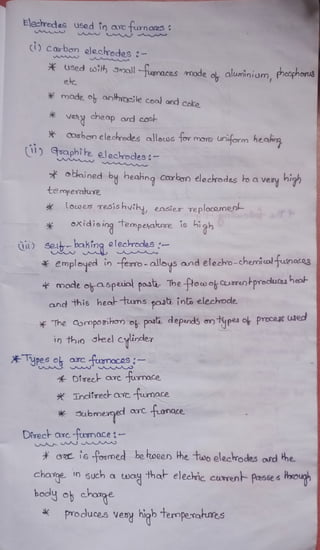 Electrodes used in arc furnaces :
(i) carbon electrodes :-
* used with small-furnaces made of aluminium, phosphorus
etc
* made of anthracite coal and coke
* very cheap and cost
* carbon electrodes allows for more uniform heating
(ii) Graphite electrodes :-
* obtained by heating carbon electrodes to a very high
temperature
* lower resistivity, easier replacement
* oxidising temperature is high
(iii) self-baking electrodes :-
* employed in ferro-alloys and electro-chemical furnaces
* made of a special paste. The flow of current produces heat
and this heat turns paste into electrode.
* The composition of paste depends on types of process used
in thin steel cylinder
* Types of arc furnaces :-
* Direct arc furnace
* Indirect arc furnace
* submerged arc furnace
Direct arc furnace :-
* arc is formed between the two electrodes and the
charge in such a way that electric current passes through
body of charge
* produces very high temperatures